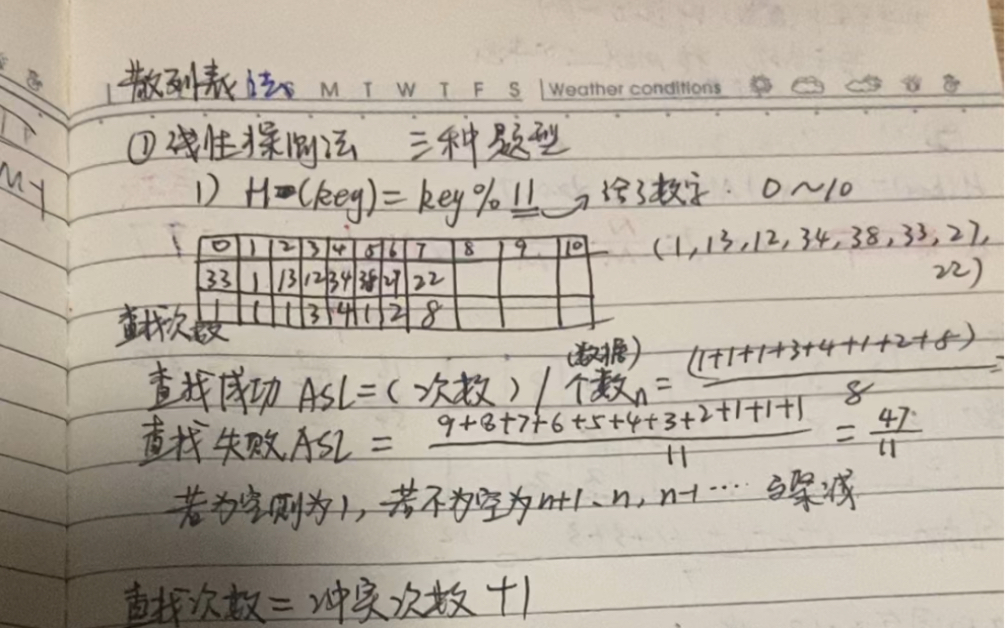 散列表 法 S M T W T F S | Weather conditions
① 线性探测法 三种题型
1) H(key) = key % 11 → 给了数字. 0~10
0 1 2 3 4 5 6 7 8 9 10 (1, 13, 12, 34, 38, 33, 27,
33 1 13 12 34 38 27 22 22)
1 1 1 3 4 1 2 8
查找次数
(数据)
查找成功 ASL = (次数) / 个数n = (1+1+1+3+4+1+2+8) / 8 =
查找失败 ASL = 9+8+7+6+5+4+3+2+1+1+1 / 11 = 47 / 11
若为空则为1, 若不为空为n+1、n, n-1 ····
查找次数 = 冲突次数 +1
My